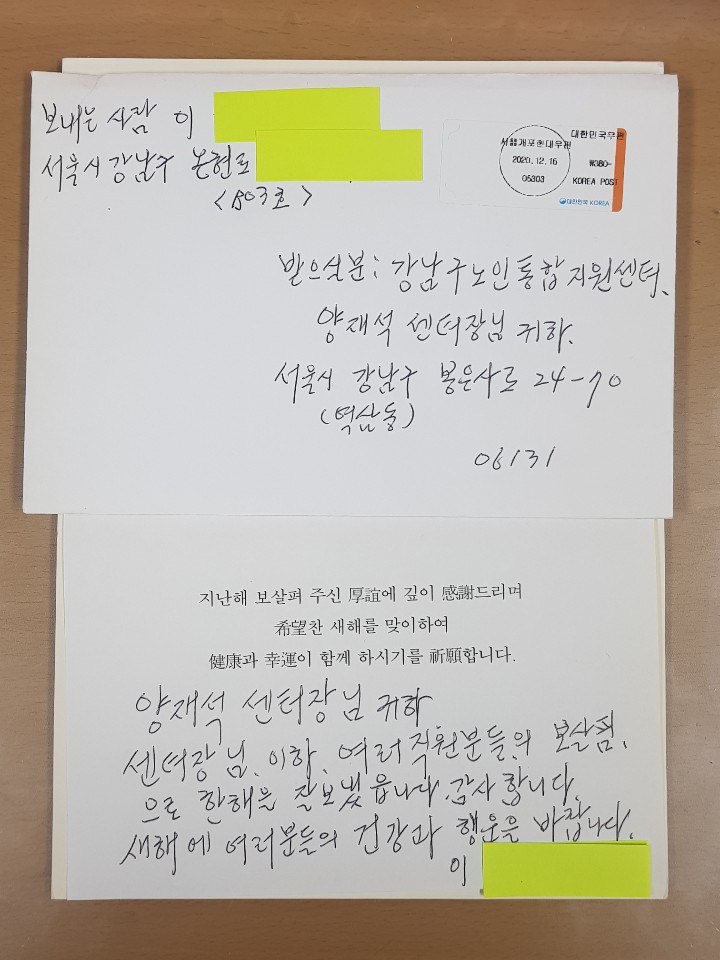 보내는 사람 이
서울시 강남구 논현로
<803호>
대한민국우편
서울개포현대우편
2020.12.16
06303
KOREA POST
대한민국 KOREA
받으실분: 강남구노인통합지원센터.
양재석 센터장님 귀하.
서울시 강남구 봉은사로 24-70
(역삼동)
06131
지난해 보살펴 주신 厚誼에 깊이 感謝드리며
希望찬 새해를 맞이하여
健康과 幸運이 함께 하시기를 祈願합니다.
양재석 센터장님 귀하
센터장님. 이하. 여러직원분들의 보살핌.
으로 한해을 잘보냈읍니다.감사합니다.
새해에 여러분들의 건강과 행운을 바랍니다.
이